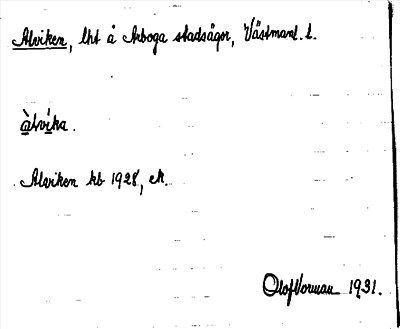 Alviken, lht å Arboga stadsägor, Västmanl. l.
àlvi̇̀ka.
Alviken kb 1928, ek.
Olof Vorman 1931.